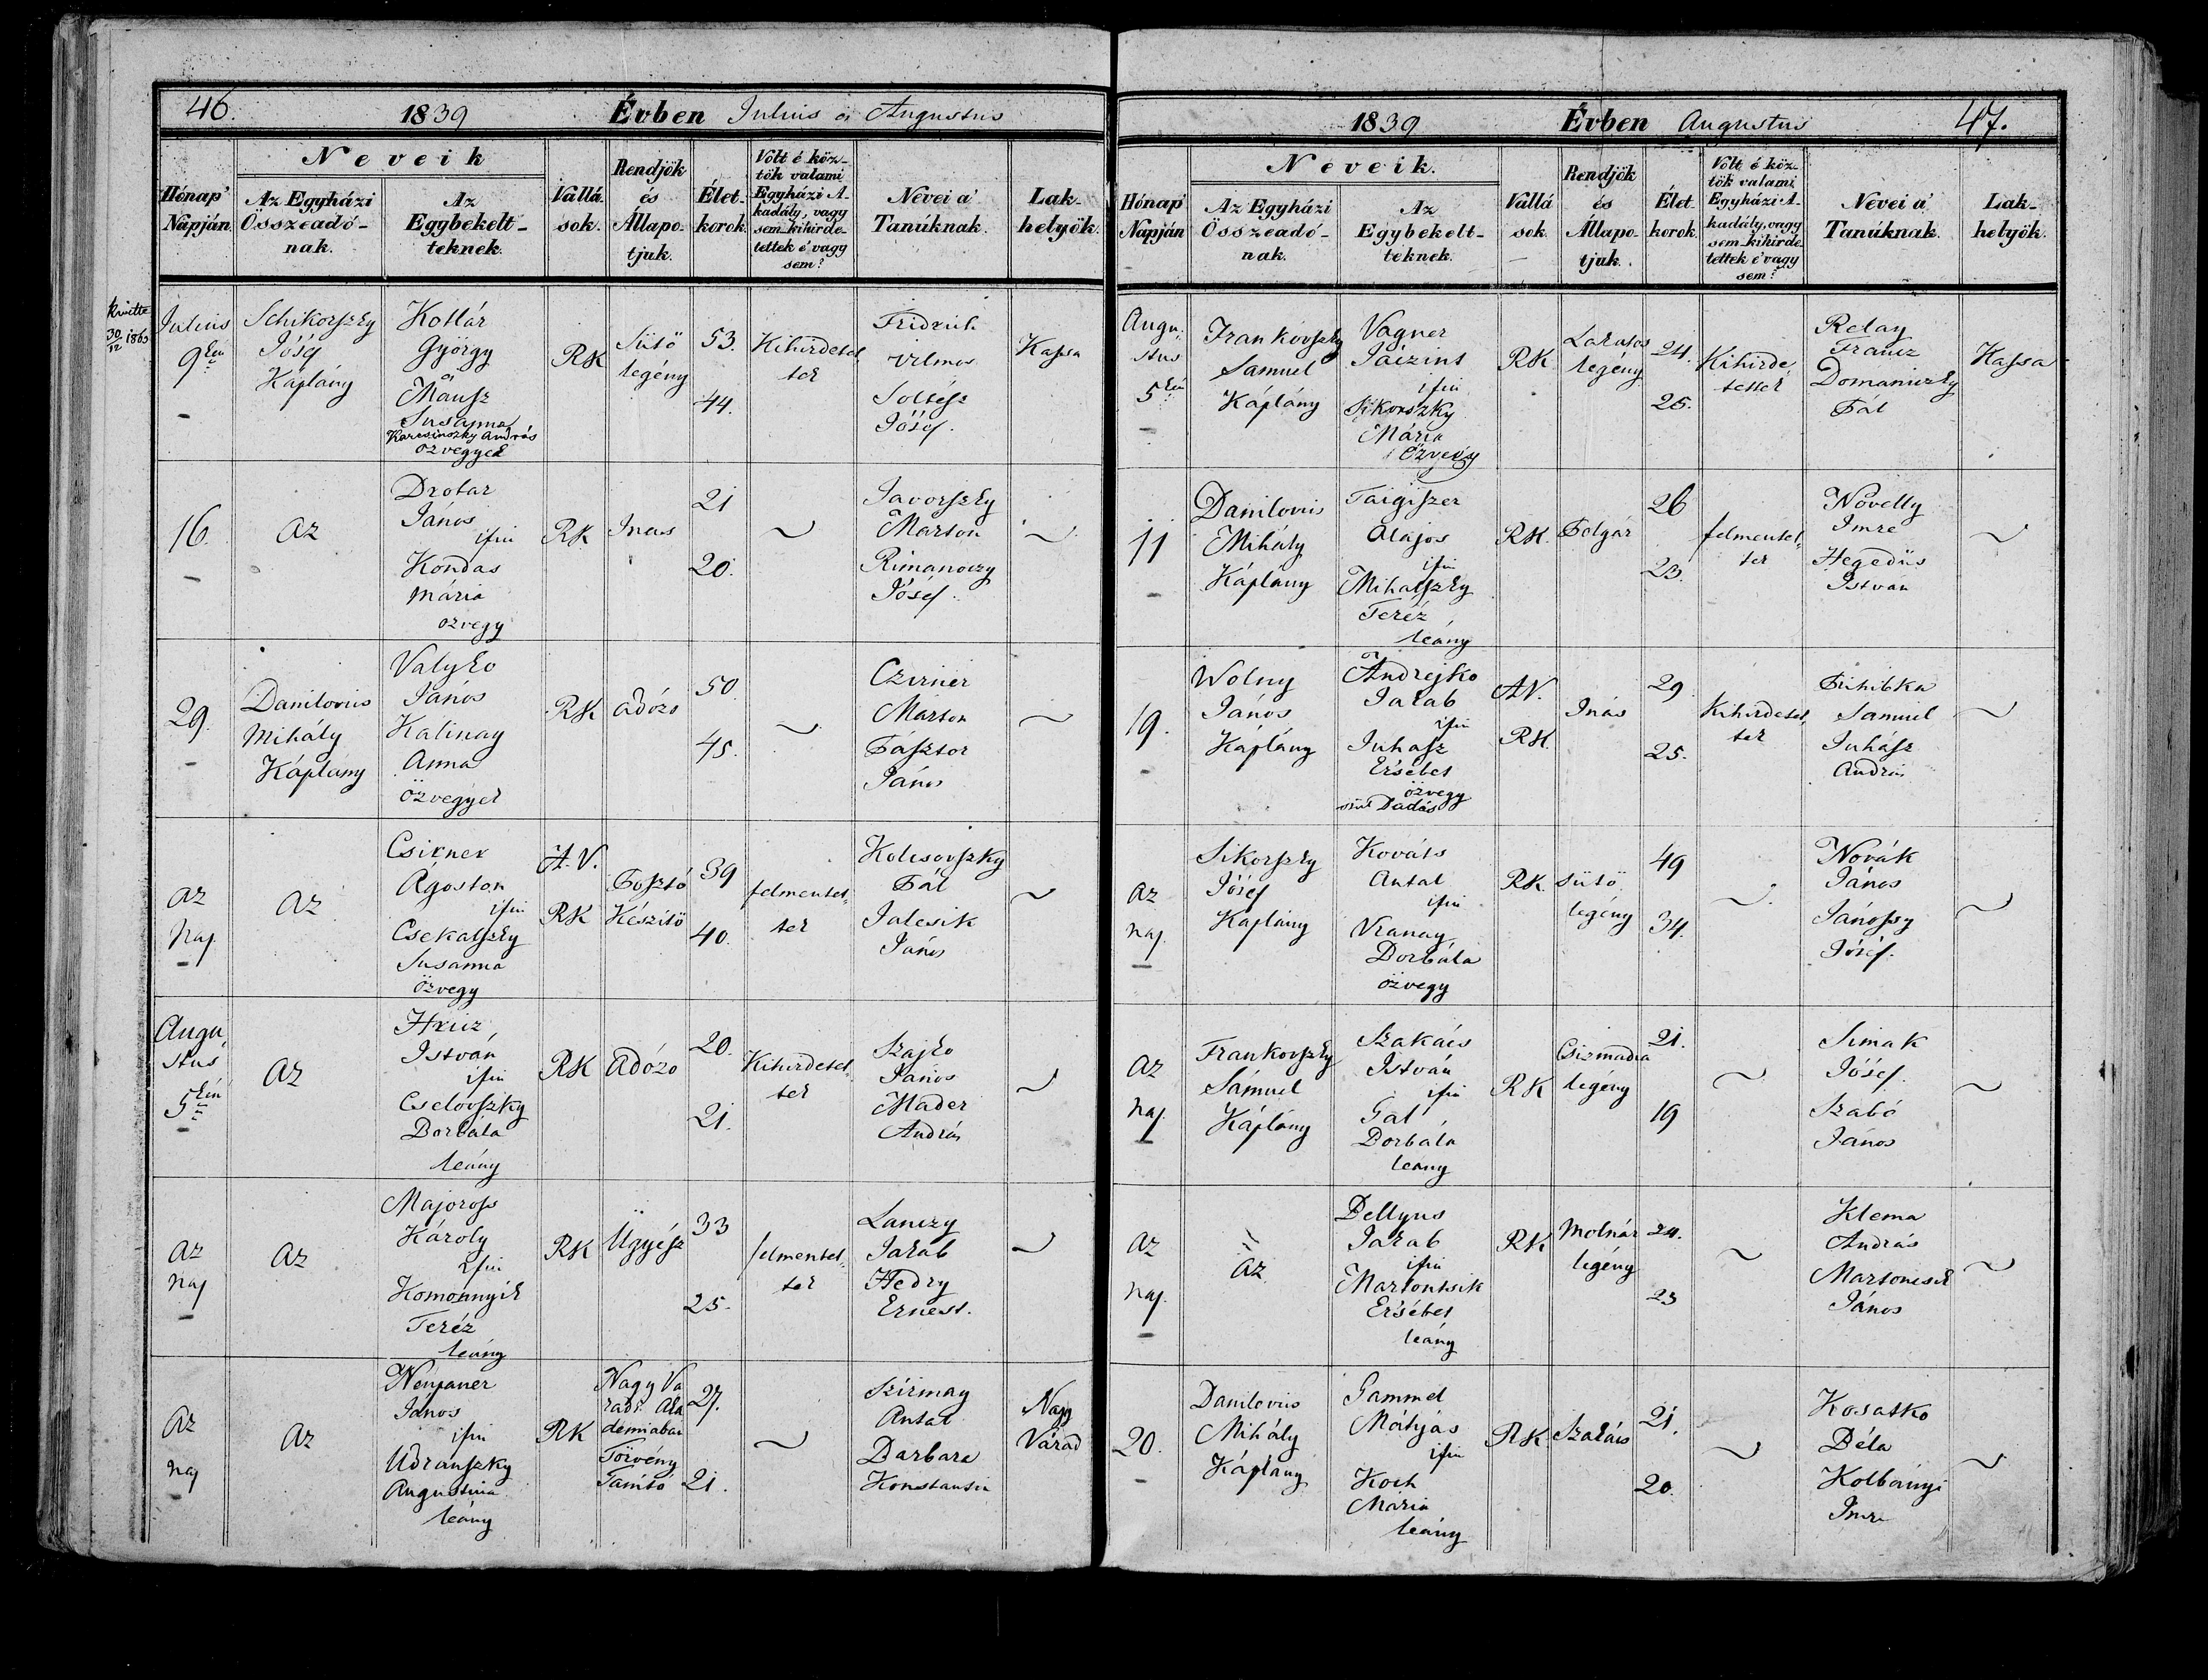 46.
1839 Évben Julius és Augustus
Hónap' Napján.
Neveik
Az Egyházi Összeadó-nak.
Az Egybekelt-teknek.
Vallá-sok.
Rendjök és Állapo-tjuk.
Élet-korok.
Volt é köz-tök valami Egyházi A-kadály, vagy sem kihirde-tettek é vagy sem?
Nevei a' Tanúknak.
Lak-helyök.
30/12 1863
Julius
9kén
Schikorszky
Jósef
Káplány
Kotlár
György
és
Mausz
Susanna
Karcsinszky András
özvegyek
RK
Sütö
legény
53.
44.
Kihirdetet
tek
Fridrich
Vilmos
Soltész
Jósef.
Kassa
16.
az
Drotar
János
ifiu
Kondas
Mária
özvegy
RK
Inas
21
20.
~
Javorszky
Marton
Rimanoczy
Jósef.
~
29.
Danilovics
Mihály
Káplany
Valyko
János
Kalinay
Anna
özvegyek
RK
adózo
50
45.
~
Czirner
Marton
Pásztor
János
~
az
nap
az
Csiknek
Ágoston
ifiu
Csekalszky
Susanna
özvegy
A.V.
RK
Posztó
Készitö
39
40.
felmentet
tek
Kolcsovszky
Pál
Jalcsik
János
~
Augu
stus
5kén
az
Hricz
István
ifiu
Cselovszky
Borbála
leány
RK
Adózo
20.
21.
Kihirdetet
tek
Szajko
János
Mader
András
~
az
nap
az
Majoross
Károly
ifiu
Komonnyik
Teréz
leány
RK
Ügyész
33
25.
felmentet
tek
Lanczy
Jakab
Hedry
Ernest.
~
Az
nap
az
János
ifiu
Udranszky
Augustina
leány
RK
Nagy Va
radi Aka
demiaban
Törvény
Tanító
27.
21.
~
Szirmay
Antal
Barbara
Konstantin
Nagy
Várad
1839 Évben Augustus
47.
Hónap' Napján
Neveik.
Az Egyházi Összeadó-nak.
Az Egybekelt-teknek.
Vallá sok.
Rendjök és Állapo-tjuk.
Élet-korok.
Volt é köz-tök valami Egyházi A-kadály, vagy sem kihirde-tettek é vagy sem?
Nevei a' Tanúknak.
Lak-helyök.
Augu
stus
5kén
Frankovszky
Samuel
Káplány
Vagner
Jáczint
ifiu
Sikorszky
Mária
Özvegy
RK
Lakatos
legény
24.
25.
Kihirde
tettek
Relay
Francz
Domaniczky
Pál
Kassa
11
Danilovics
Mihály
Káplány
Taigiszer
Alajos
ifiu
Mihalszky
Teréz
leány
RK.
Polgár
26
23.
felmentet
tek
Novelly
Imre
Hegedüs
Istvan
~
19.
Wolny
János
Káplány
Andrejko
Jakab
ifiu
Juhasz
Ersébet
özvegy
Dadás
AV.
RK.
Inás
29
25.
Kihirdetet
tek
Samuel
Juhász
András
~
az
nap.
Sikorszky
Jósef
Kaplány
Kováts
Antal
ifiu
Vranay
Borbála
özvegy
RK.
sütö
legény
49
34.
~
Novák
János
Jánossy
Jósef.
~
az
nap.
Frankovszky
Sámuel
Káplány
Szakács
István
ifiu
Gal
Borbála
leany
RK
Csizmadia
legény
21.
19
~
Simak
Jósef.
Szabó
János
~
az
nap.
az
Dellyus
Jakab
ifiu
Martontsik
Ersébet
leány
RK
Molnár
legény
24.
23
~
Klema
András
Martoncsik
János
~
20.
Danilovics
Mihály
Káplány
Gammel
Mátyás
ifiu
Koch
Maria
leány
RK
Szakács
21.
20.
~
Kosatko
Béla
Kolbányi
Imre
~